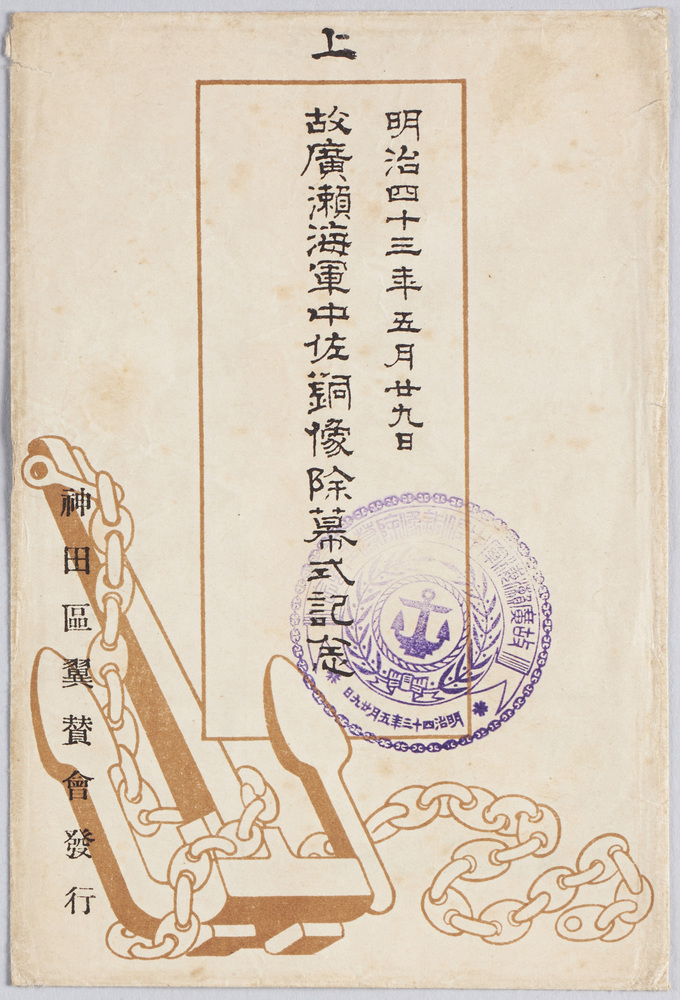 上
明治四十三年五月廿九日
故廣瀬海軍中佐銅像除幕式記念
神田區翼賛會發行
明治四十三年五月廿九日